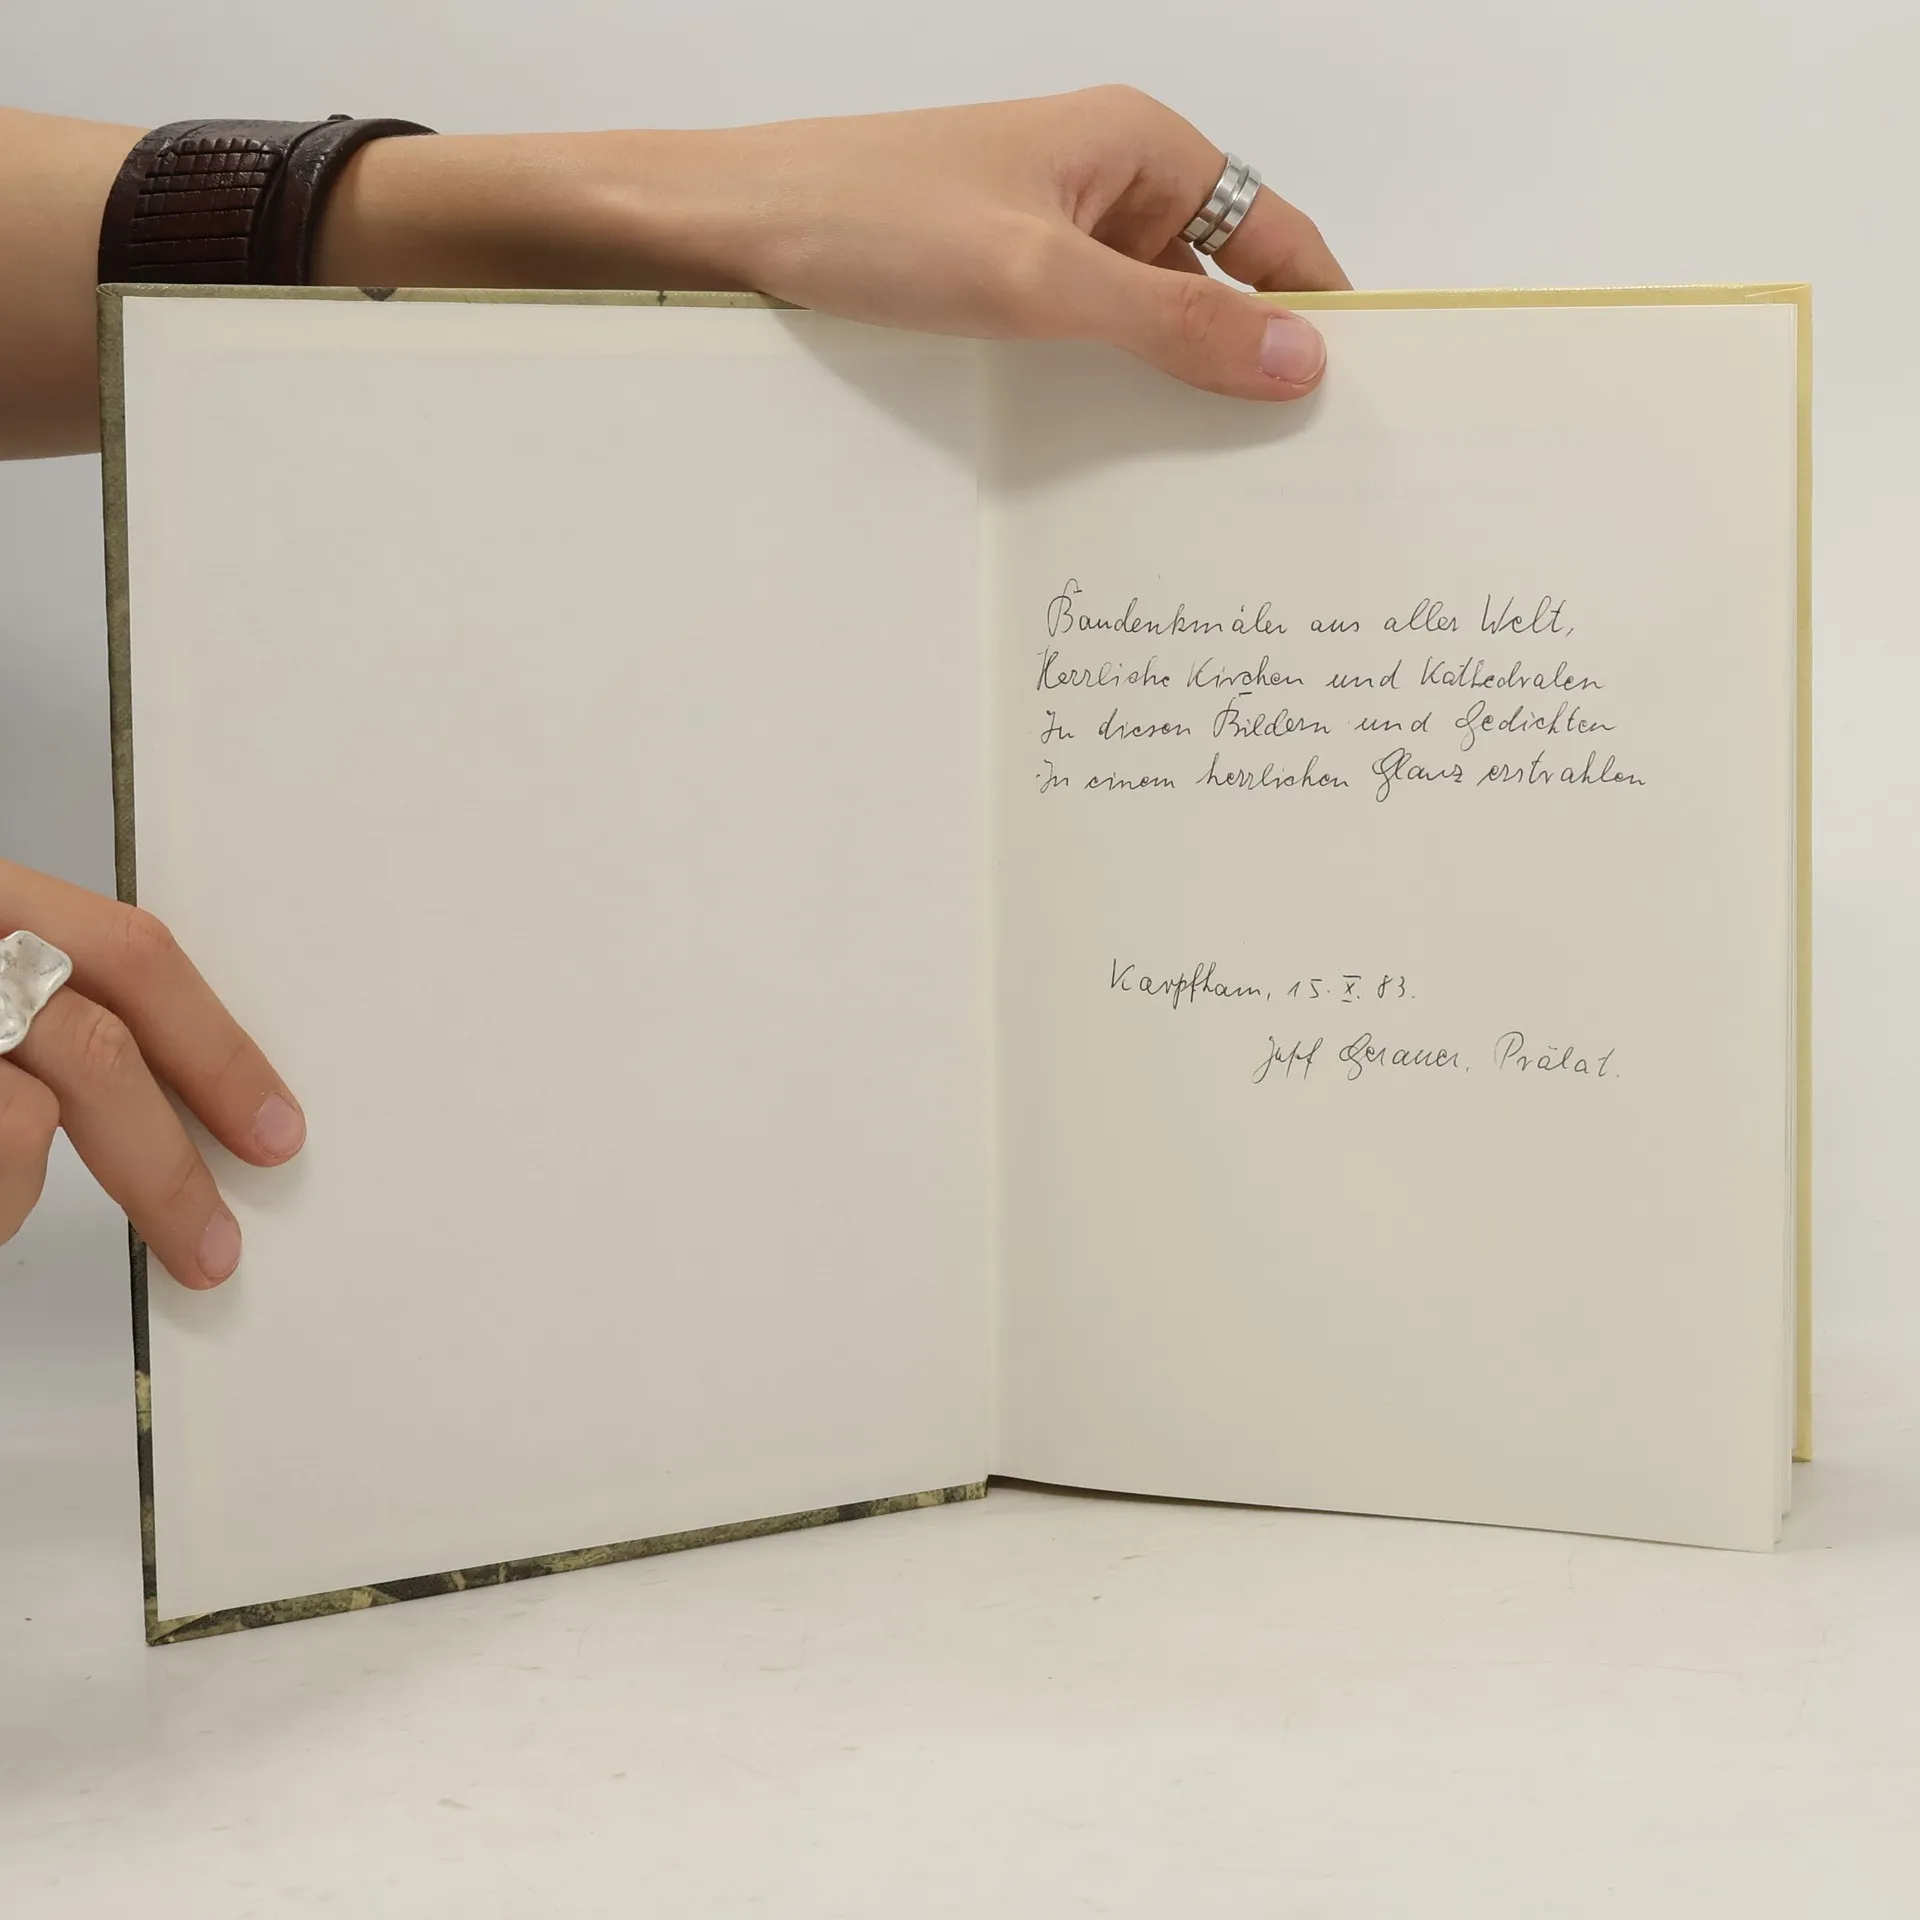 Baudenkmäler aus aller Welt,
Herrliche Kirchen und Kathedralen
In diesen Bildern und Gedichten
In einem herrlichen Glanz erstrahlen
Karpfham, 15. X. 83.
Gerauer, Prälat.